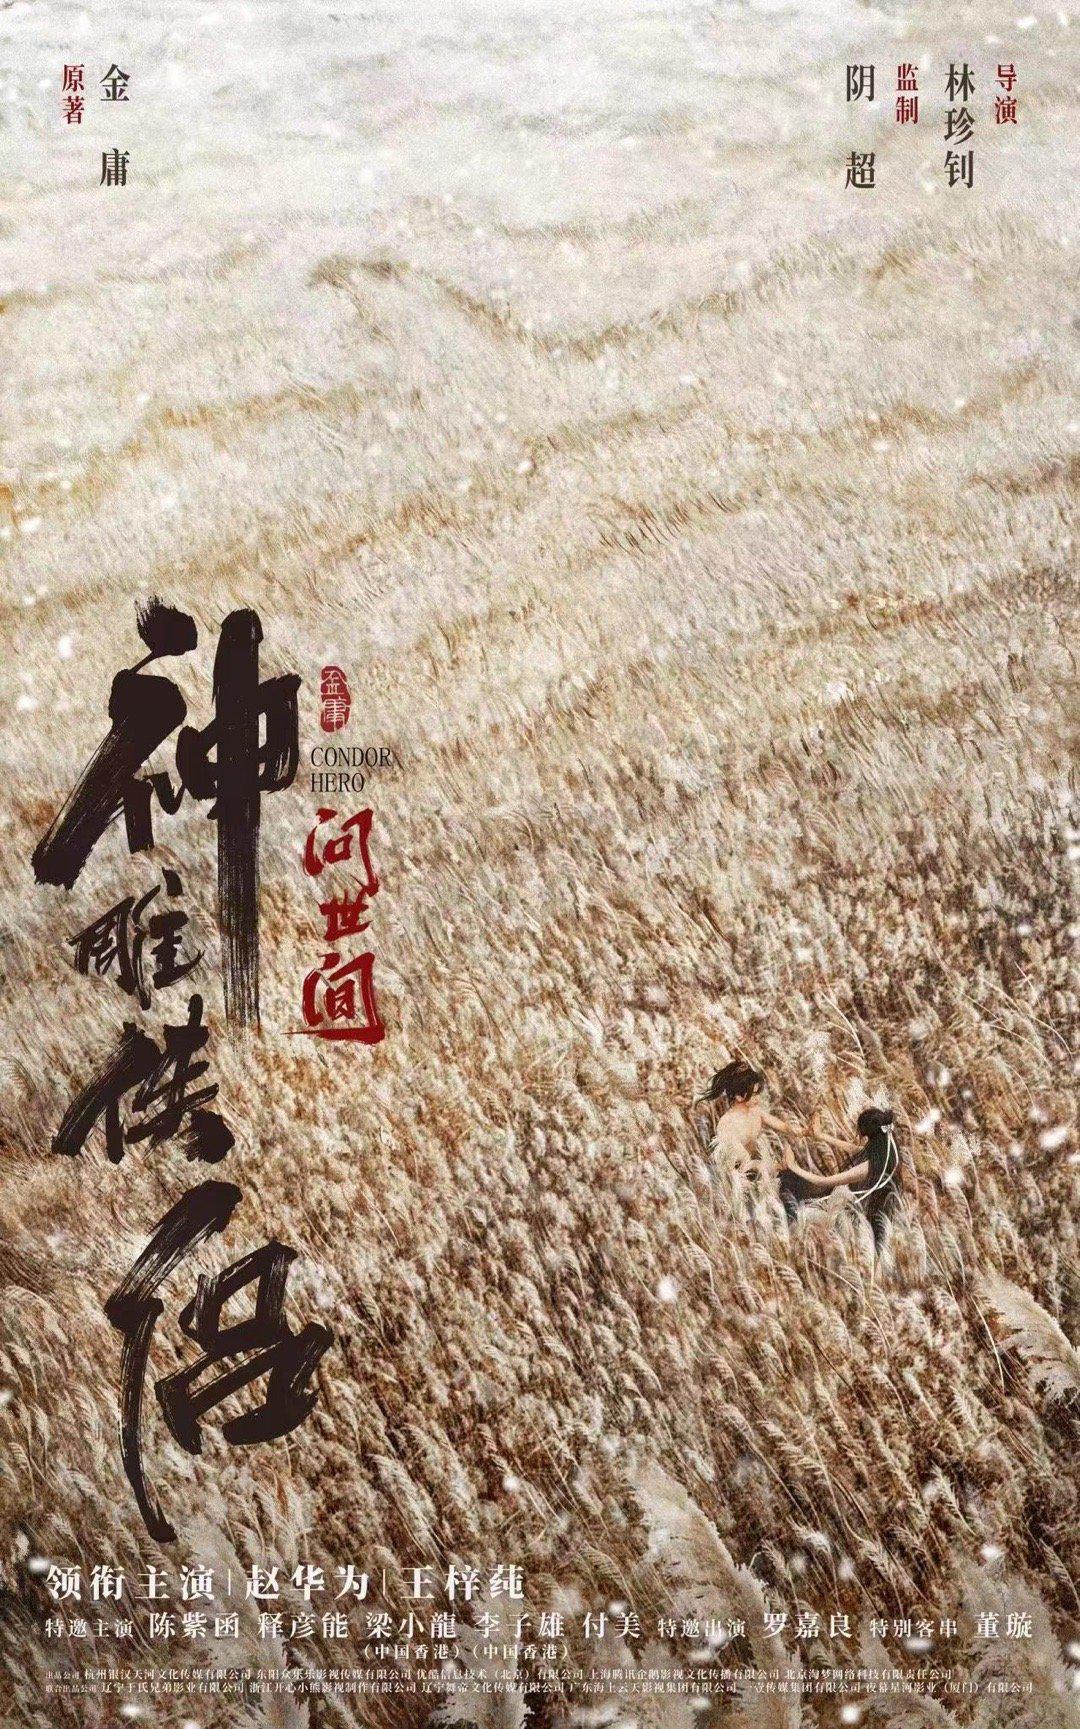 原著
金庸
导演
林珍钊
监制
阴超
神雕侠侣
金庸
CONDOR
HERO
问世间
领衔主演|赵华为|王梓莼
特邀主演 陈紫函 释彦能 梁小龍 李子雄 付美 特邀出演 罗嘉良 特别客串 董璇
(中国香港) (中国香港)
出品公司 杭州银汉天河文化传媒有限公司 东阳众乐乐影视传媒有限公司 优酷信息技术（北京）有限公司 上海腾讯企鹅影视文化传播有限公司 北京淘梦网络科技有限责任公司
联合出品公司 辽宁于氏兄弟影业有限公司 浙江开心小熊影视制作有限公司 辽宁舞帝文化传媒有限公司 广东海上云天影视集团有限公司 一壹传媒集团有限公司 夜幕星河影业（厦门）有限公司